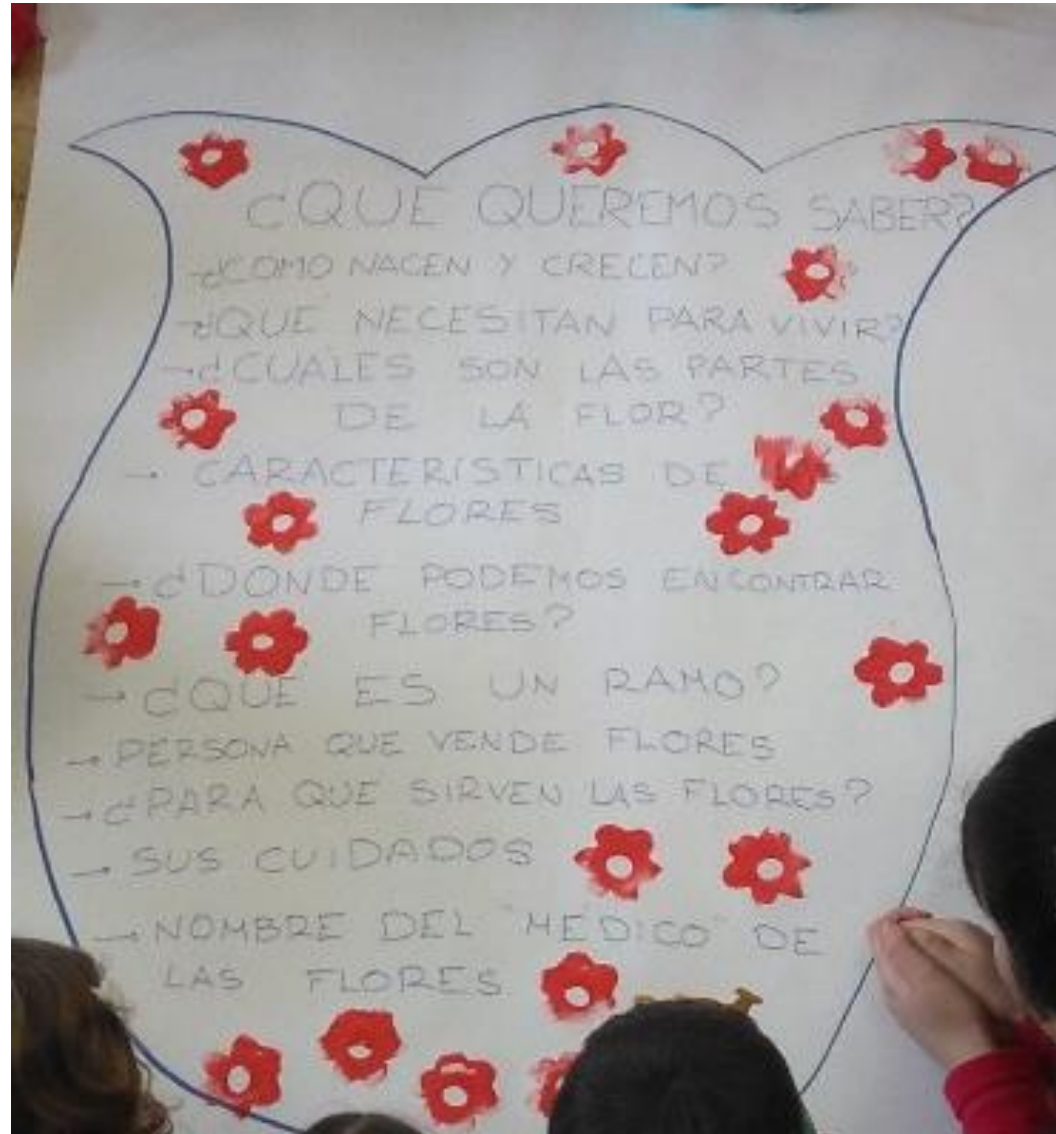 ¿QUE QUEREMOS SABER?
→¿COMO NACEN Y CRECEN?
→¿QUE NECESITAN PARA VIVIR?
→¿CUALES SON LAS PARTES
DE LA FLOR?
→ CARACTERÍSTICAS DE
FLORES
→¿DONDE PODEMOS ENCONTRAR
FLORES?
→¿QUE ES UN RAMO?
→ PERSONA QUE VENDE FLORES
→¿PARA QUE SIRVEN LAS FLORES?
→ SUS CUIDADOS
→ NOMBRE DEL "MÉDICO" DE
LAS FLORES